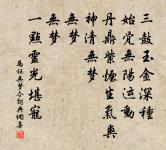 三鼓玉金深種
始覺無陽運動
丹鼎紫煙生氣與
神清無夢
無夢
無夢
一點靈光堪寵
無夢令詞